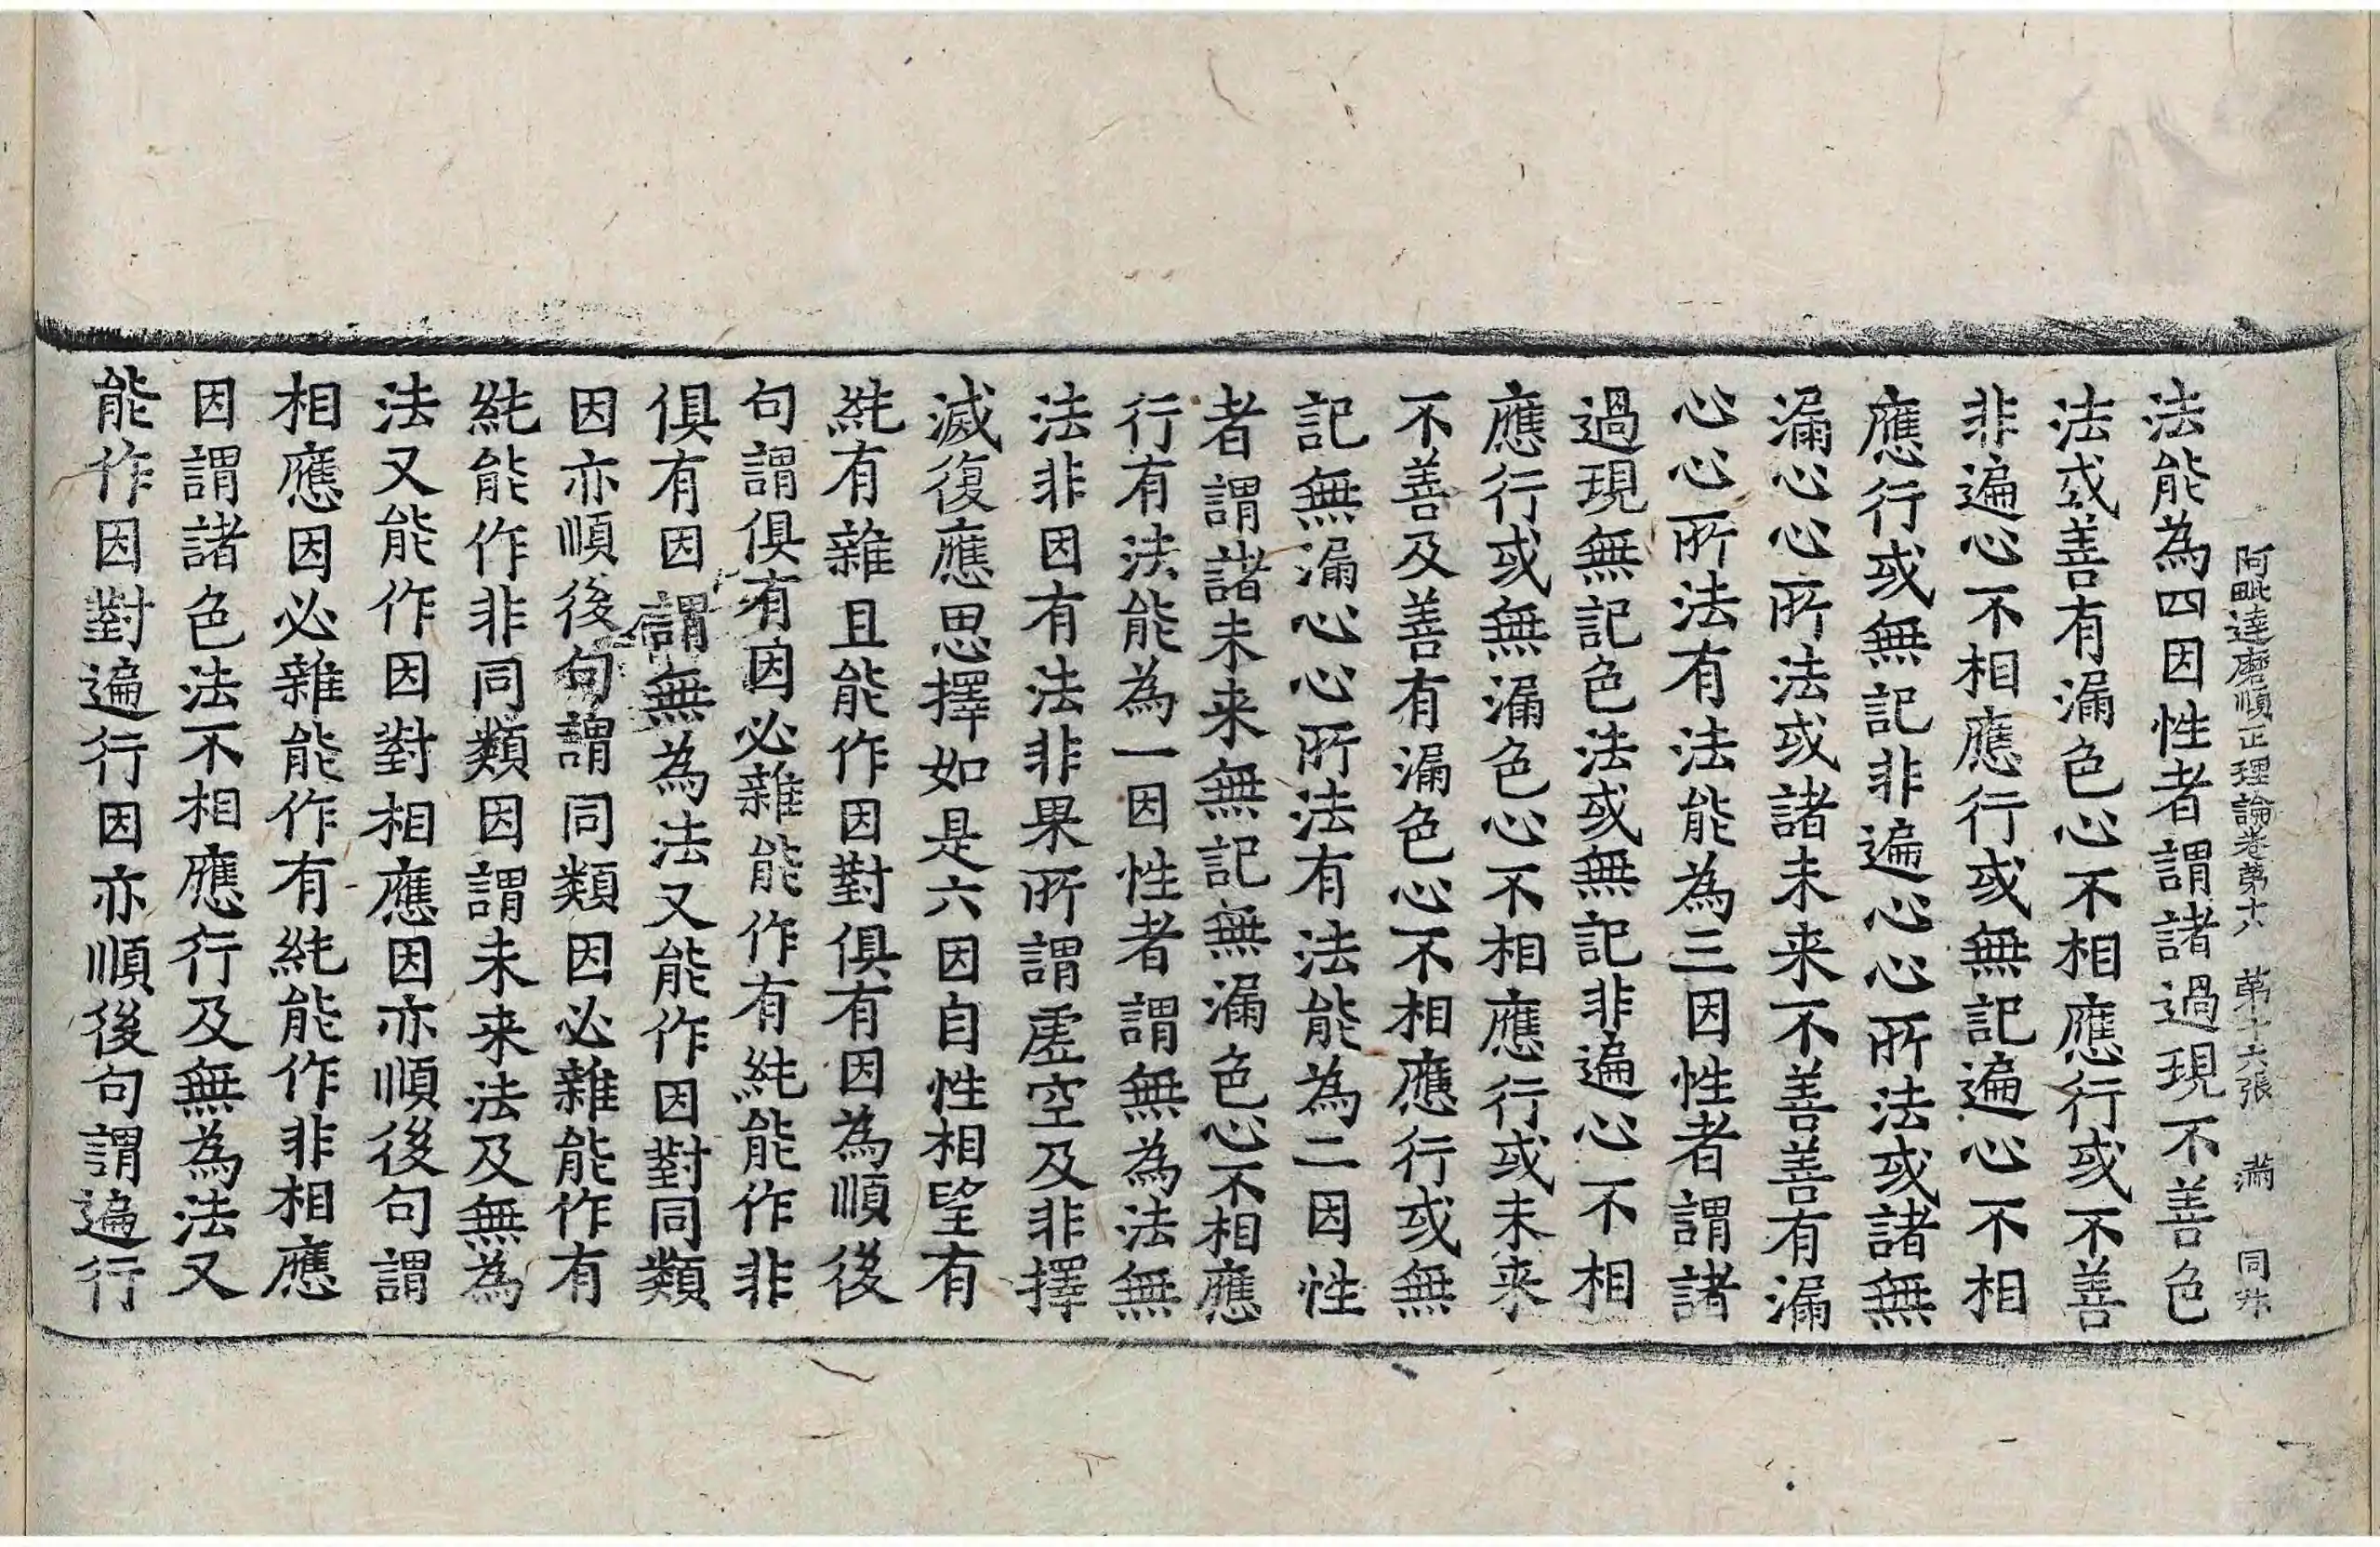 阿毗達磨順正理論卷第十六 第十六張 滿 同
法能為四因性者謂諸過現不善色
法或善有漏色心不相應行或不善
非遍心不相應行或無記遍心不相
應行或無記非遍心心所法或諸無
漏心心所法或諸未来不善善有漏
心心所法有法能為三因性者謂諸
過現無記色法或無記非遍心不相
應行或無漏色心不相應行或未来
不善及善有漏色心不相應行或無
記無漏心心所法有法能為二因性
者謂諸未来無記無漏色心不相應
行有法能為一因性者謂無為法無
法非因有法非果所謂虛空及非擇
滅復應思擇如是六因自性相望有
純有雜且能作因對俱有因為順後
句謂俱有因必雜能作有純能作非
俱有因謂無為法又能作因對同類
因亦順後句謂同類因必雜能作有
純能作非同類因謂未来法及無為
法又能作因對相應因亦順後句謂
相應因必雜能作有純能作非相應
因謂諸色法不相應行及無為法又
能作因對遍行因亦順後句謂遍行